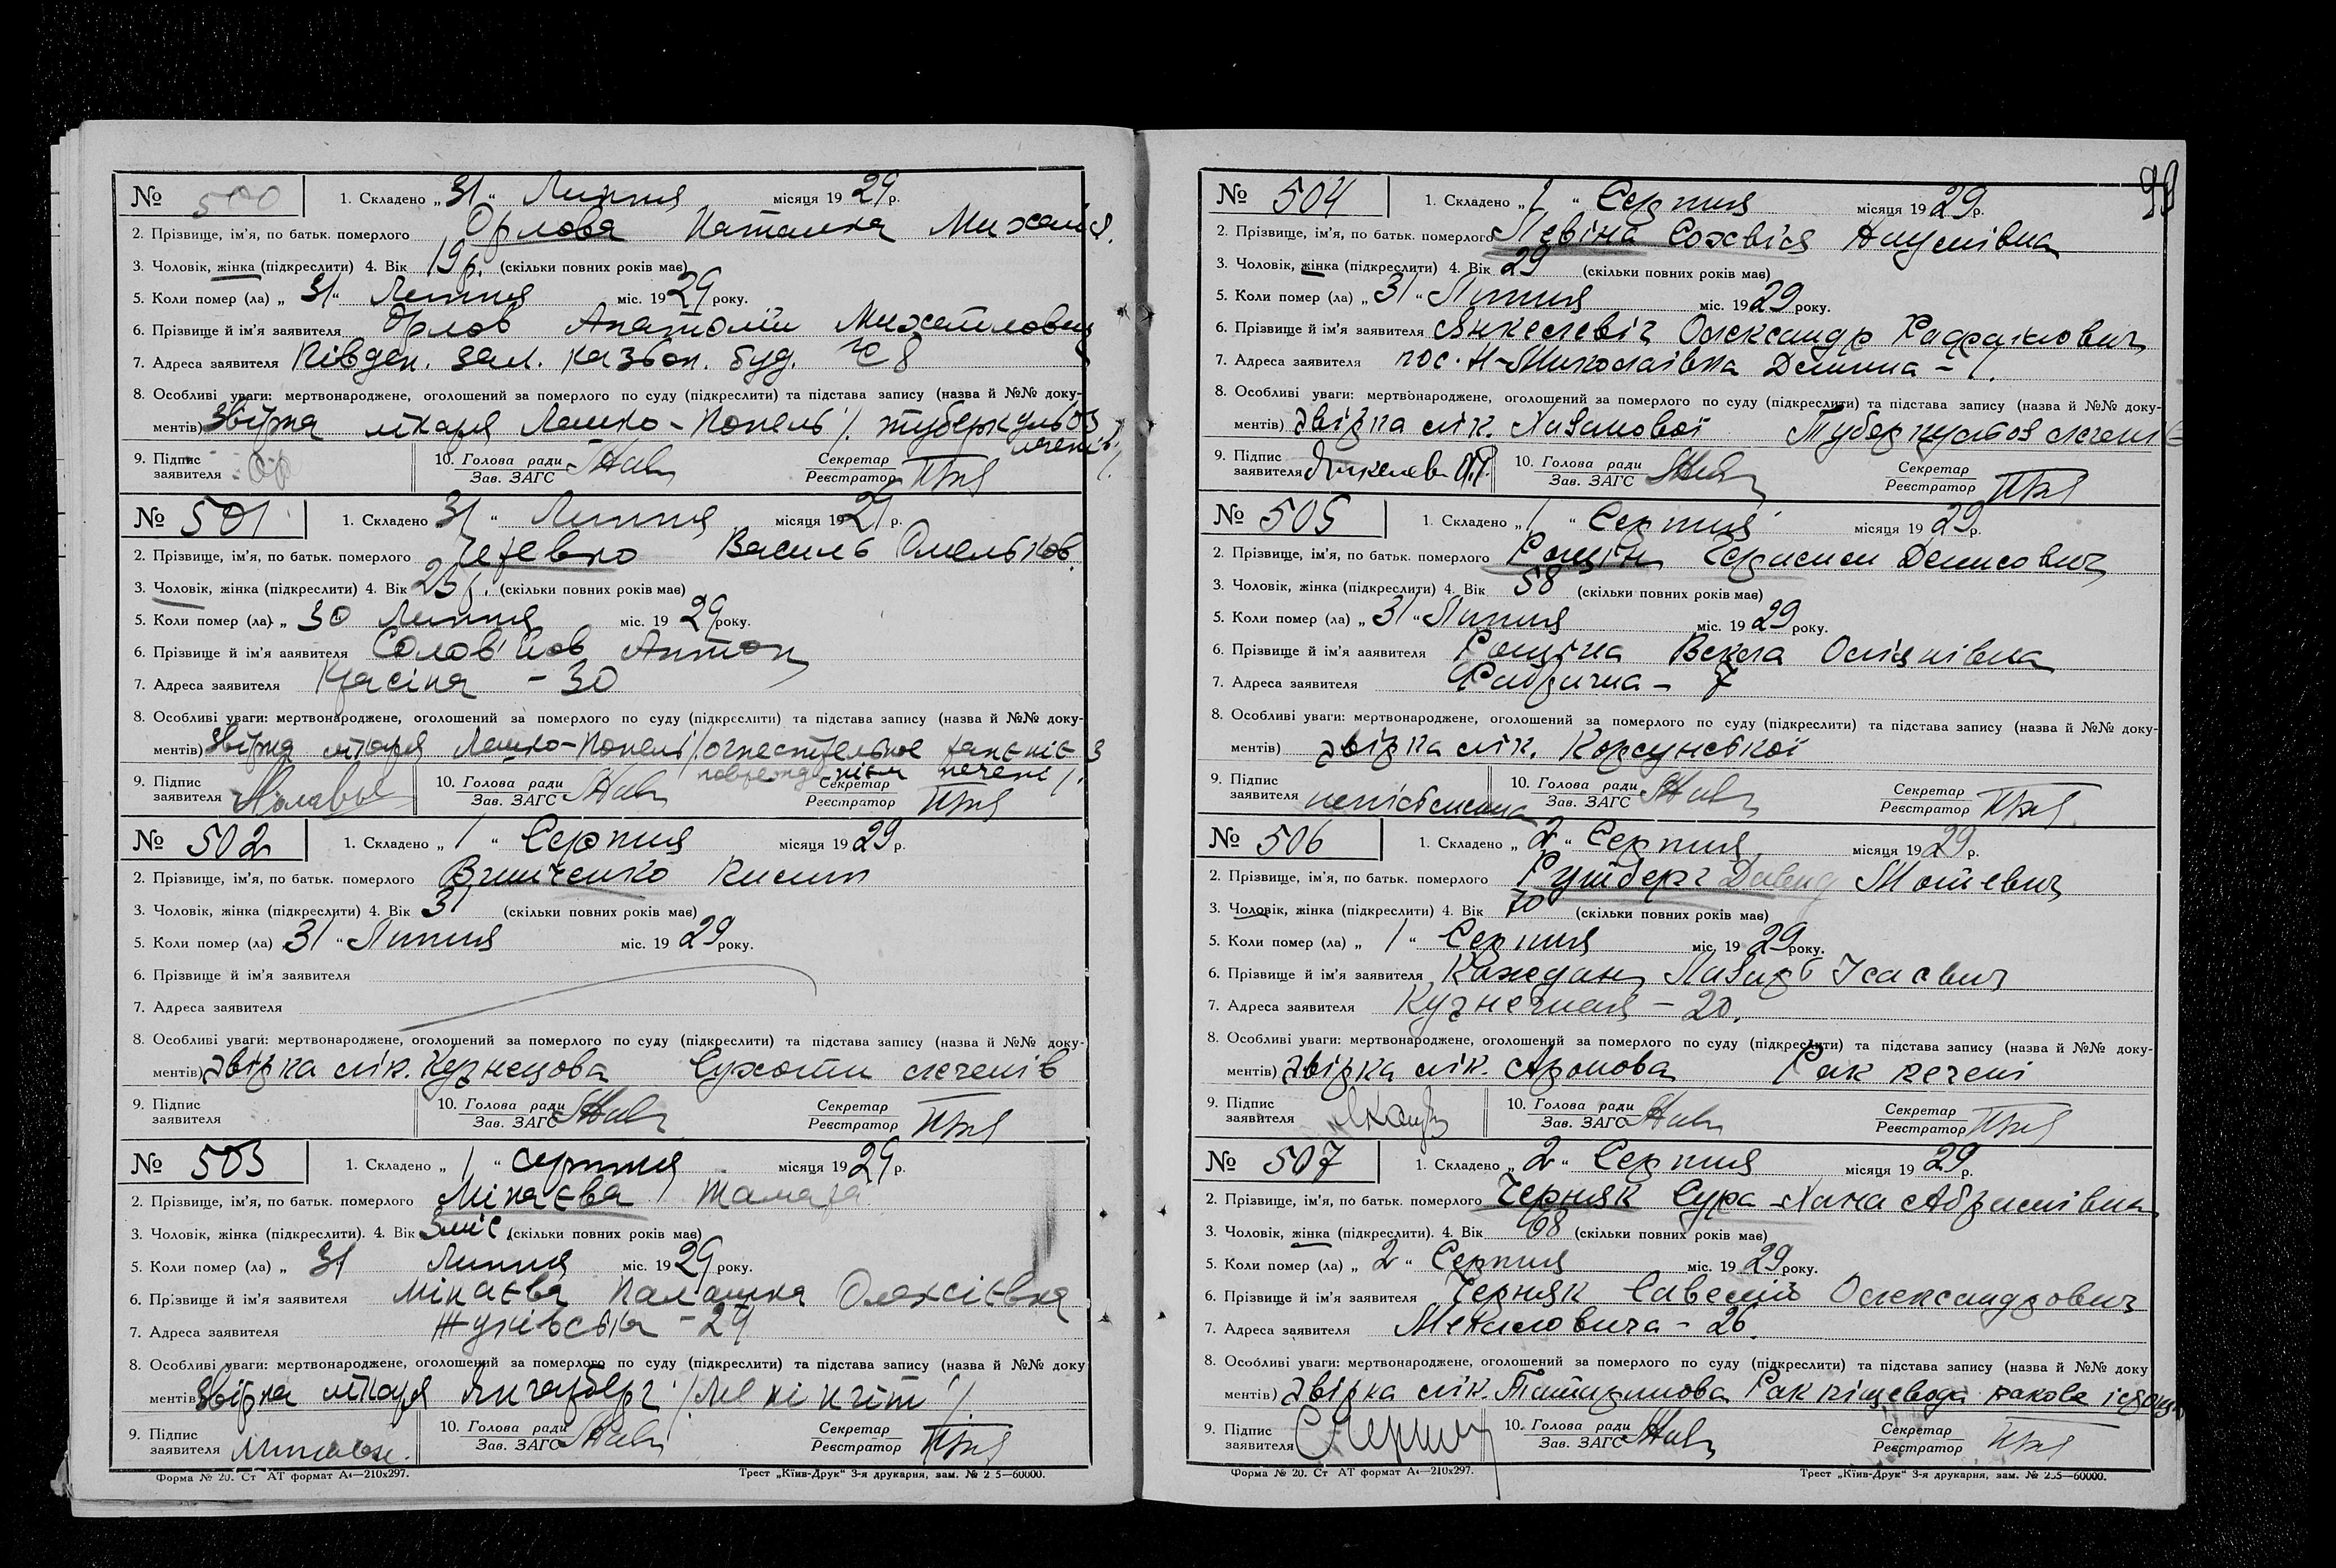 № 500 1. Складено „ 31 “ Липня місяця 1929 р.
2. Прізвище, ім'я, по батьк. померлого Орлова Наталка Михайл.
3. Чоловік, жінка (підкреслити) 4. Вік 19 р. (скільки повних років має)
5. Коли помер (ла) „ 31 “ Липня міс. 1929 року.
6. Прізвище й ім'я заявителя Орлов Анатолій Михайлович
7. Адреса заявителя Півден. зал. казьон. буд. № 8
8. Особливі уваги: мертвонароджене, оголошений за померлого по суду (підкреслити) та підстава запису (назва й №№ доку-
ментів) Звірка лікаря Лашко-Попель /. туберкульоз
легенів /.
9. Підпис заявителя 10. Голова ради Зав. ЗАГС Секретар Реєстратор
№ 501 1. Складено 31 “ Липня місяця 1929 р.
2. Прізвище, ім'я, по батьк. померлого Василь Омельков.
3. Чоловік, жінка (підкреслити) 4. Вік 25 р. (скільки повних років має)
5. Коли помер (ла) „ 30 Липня міс. 1929 року.
6. Прізвище й ім'я заявителя Солов'йов Антон
7. Адреса заявителя Красіна - 30
8. Особливі уваги: мертвонароджене, оголошений за померлого по суду (підкреслити) та підстава запису (назва й №№ доку-
ментів) Звірка лікаря Лашко-Попель /. огнестрельное ранєніє з
поврежденієм печені /.
9. Підпис заявителя 10. Голова ради Зав. ЗАГС Секретар Реєстратор
№ 502 1. Складено „ 1 “ Серпня місяця 1929 р.
2. Прізвище, ім'я, по батьк. померлого
3. Чоловік, жінка (підкреслити) 4. Вік 31 (скільки повних років має)
5. Коли помер (ла) 31 “ Липня міс. 1929 року.
6. Прізвище й ім'я заявителя
7. Адреса заявителя
8. Особливі уваги: мертвонароджене, оголошений за померлого по суду (підкреслити) та підстава запису (назва й №№ доку-
ментів) звірка лік. Кузнецова Сухоти легенів
9. Підпис заявителя 10. Голова ради Зав. ЗАГС Секретар Реєстратор
№ 503 1. Складено „ 1 “ серпня місяця 1929 р.
2. Прізвище, ім'я, по батьк. померлого Мінаєва Тамара
3. Чоловік, жінка (підкреслити). 4. Вік 3 міс (скільки повних років має)
5. Коли помер (ла) „ 31 Липня міс. 1929 року.
6. Прізвище й ім'я заявителя Мінаєва Палашка Олексієвна
7. Адреса заявителя Жуківська - 29
8. Особливі уваги: мертвонароджене, оголошений за померлого по суду (підкреслити) та підстава запису (назва й №№ доку
ментів) Звірка лікаря /. Менінгіт /.
9. Підпис заявителя 10. Голова ради Зав. ЗАГС Секретар Реєстратор
Форма № 20. Ст АТ формат А4—210х297. Трест „Київ-Друк“ 3-я друкарня, зам. № 2 5—60000.
99
№ 504 1. Складено „ 1 “ Серпня місяця 1929 р.
2. Прізвище, ім'я, по батьк. померлого Левіна
3. Чоловік, жінка (підкреслити) 4. Вік 29 (скільки повних років має)
5. Коли помер (ла) „ 31 “ Липня міс. 1929 року.
6. Прізвище й ім'я заявителя Янкелевіч Олександр Рафаілович
7. Адреса заявителя пос. Н-Миколаівка Деміна - 1.
8. Особливі уваги: мертвонароджене, оголошений за померлого по суду (підкреслити) та підстава запису (назва й №№ доку-
ментів) звірка лік. Хазанової Туберкульоз легенів
9. Підпис заявителя Янкелев 10. Голова ради Зав. ЗАГС Секретар Реєстратор
№ 505 1. Складено „ 1 “ Серпня місяця 1929 р.
2. Прізвище, ім'я, по батьк. померлого Рощін Денисович
3. Чоловік, жінка (підкреслити) 4. Вік 58 (скільки повних років має)
5. Коли помер (ла) „ 31 “ Липня міс. 1929 року.
6. Прізвище й ім'я заявителя Рощіна Векла
7. Адреса заявителя Фабрична - 7
8. Особливі уваги: мертвонароджене, оголошений за померлого по суду (підкреслити) та підстава запису (назва й №№ доку-
ментів) звірка лік. Корсунської
9. Підпис заявителя неписьменна 10. Голова ради Зав. ЗАГС Секретар Реєстратор
№ 506 1. Складено „ 2 “ Серпня місяця 1929 р.
2. Прізвище, ім'я, по батьк. померлого Рутберг Давид
3. Чоловік, жінка (підкреслити) 4. Вік 70 (скільки повних років має)
5. Коли помер (ла) „ 1 “ Серпня міс. 1929 року.
6. Прізвище й ім'я заявителя Каждан Лазарь Ісаєвич
7. Адреса заявителя Кузнечная - 20.
8. Особливі уваги: мертвонароджене, оголошений за померлого по суду (підкреслити) та підстава запису (назва й №№ доку-
ментів) звірка лік. Аронова Рак печені
9. Підпис заявителя 10. Голова ради Зав. ЗАГС Секретар Реєстратор
№ 507 1. Складено „ 2 “ Серпня місяця 1929 р.
2. Прізвище, ім'я, по батьк. померлого Черняк Сура-Хана Абрамівна
3. Чоловік, жінка (підкреслити). 4. Вік 68 (скільки повних років має)
5. Коли помер (ла) „ 2 “ Серпня міс. 1929 року.
6. Прізвище й ім'я заявителя Черняк Савелій Олександрович
7. Адреса заявителя - 26.
8. Особливі уваги: мертвонароджене, оголошений за померлого по суду (підкреслити) та підстава запису (назва й №№ доку
ментів) звірка лік. Рак піщевода ракове
9. Підпис заявителя 10. Голова ради Зав. ЗАГС Секретар Реєстратор
Форма № 20. Ст АТ формат А4—210х297. Трест „Київ-Друк“ 3-я друкарня, зам. № 2.5—60000.